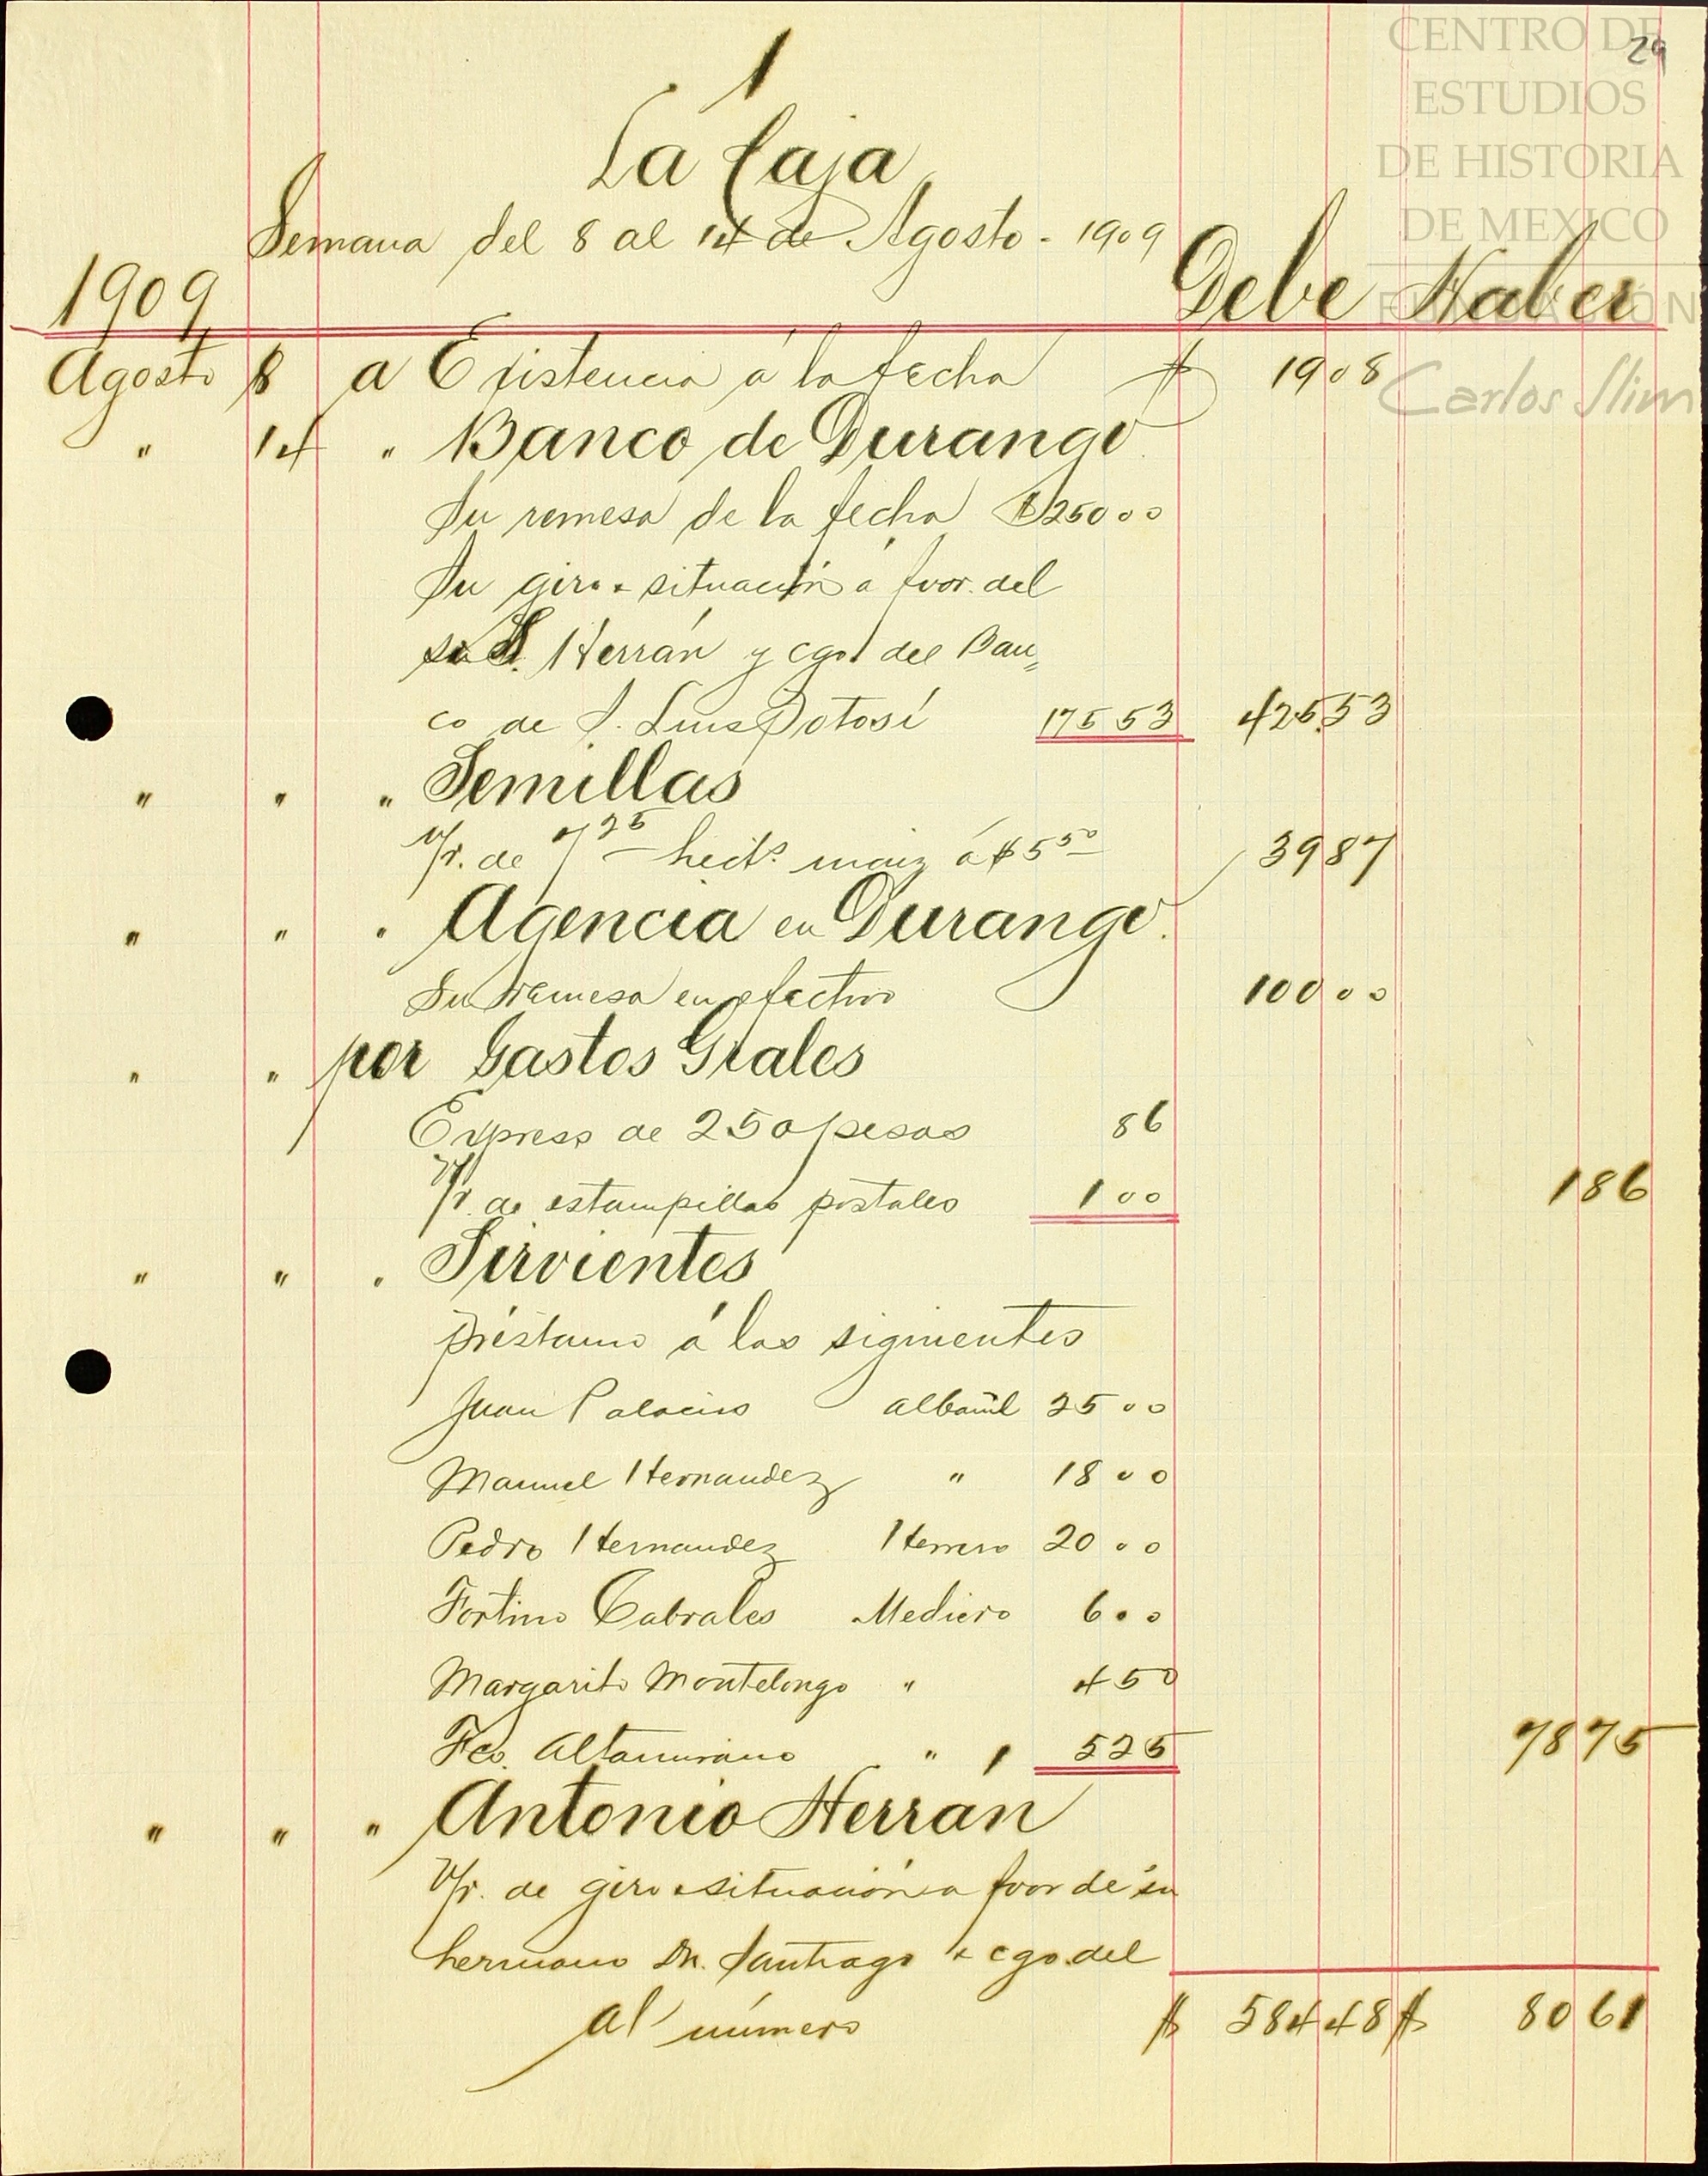 CENTRO DE
ESTUDIOS
DE HISTORIA
DE MEXICO
FUNDACIÓN
Carlos Slim
29
1
La Caja
Semana del 8 al 14 de Agosto - 1909
1909 Debe Haber
Agosto 8 a Existencia á la fecha $ 19 08
" 14 " Banco de Durango
Su remesa de la fecha $250 00
Su giro situación á fvor. del
S. Herrán y cgo. del Ban„
co de S. Luis Potosí 175 53 425 53
" " " Semillas
V/r. de 7 25 hects. maiz á $5 50 39 87
" " " Agencia en Durango.
Su remesa en efectivo 100 00
" " por Gastos Grales
Express de 250 pesos 86
V/r. de estampillas postales 1 00 1 86
" " " Sirvientes
Préstamo á los siguientes
Juan Palacios albañil 25 00
Manuel Hernandez " 18 00
Pedro Hernandez Herrero 20 00
Fortino Cabrales Mediero 6 00
Margarito Montelongo " 4 50
Fco. Altamirano " 5 25 78 75
" " " Antonio Herrán
V/r. de giro situación a fvor de su
hermano Dn. Santiago cgo. del
al número $ 584 48 $ 80 61